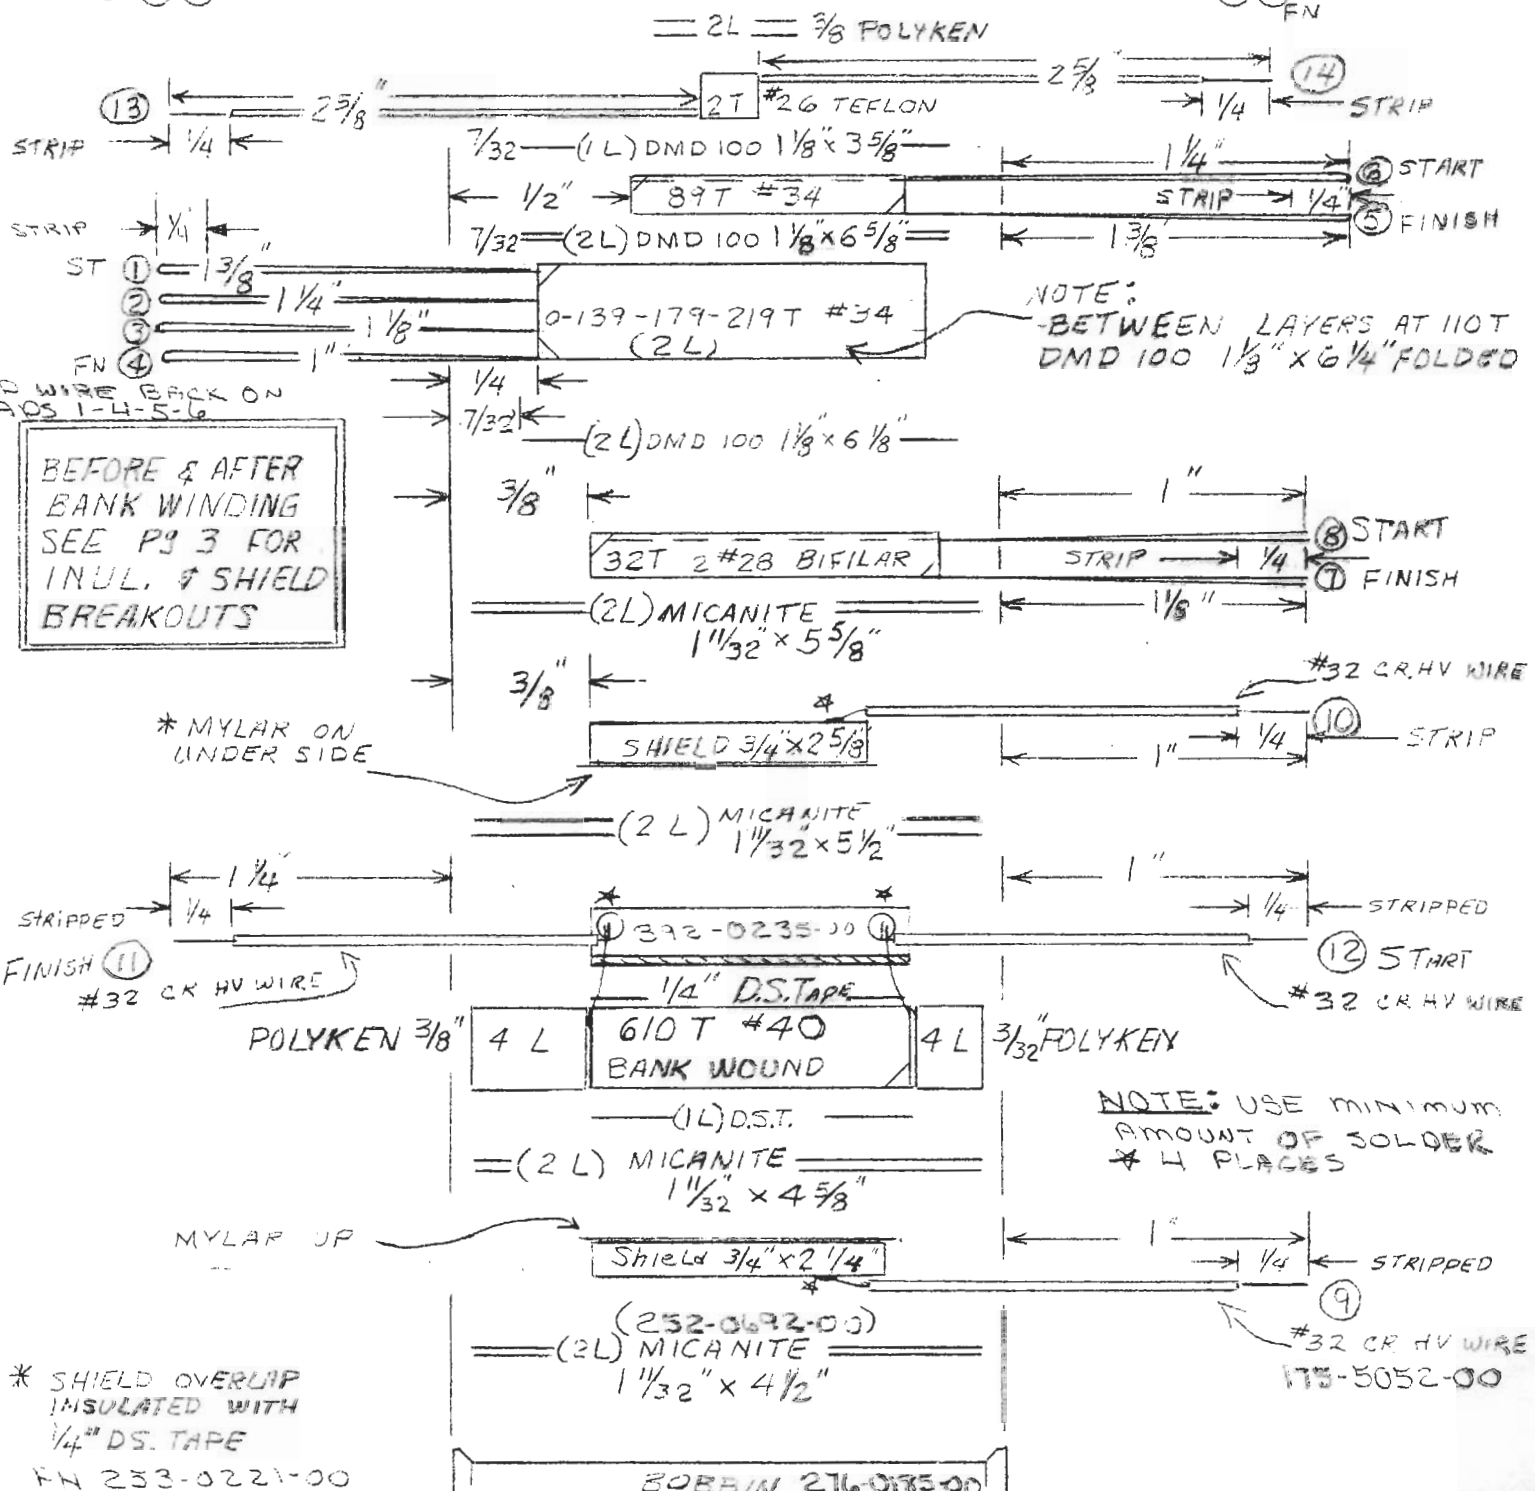 FN
2L 3/8 POLYKEN
13 2 5/8" 2T #26 TEFLON 2 5/8" 14
STRIP 1/4 1/4 STRIP
7/32 (1L) DMD 100 1 1/8" x 3 5/8"
1/2" 89T #34 1 1/4" START
STRIP 1/4"
7/32 (2L) DMD 100 1 1/8" x 6 5/8" 1 3/8" 5 FINISH
STRIP 1/4"
ST 1 1 3/8"
2 1 1/4"
3 1 1/8"
FN 4 1"
0-139-179-219T #34
(2L)
NOTE:
-BETWEEN LAYERS AT 110T
DMD 100 1 1/8" x 6 1/4" FOLDED
WIRE BACK ON
1-4-5-6
1/4
7/32
(2L) DMD 100 1 1/8" x 6 1/8"
BEFORE & AFTER
BANK WINDING
SEE Pg 3 FOR
INUL. & SHIELD
BREAKOUTS
3/8" 1"
32T 2#28 BIFILAR 8 START
STRIP 1/4
7 FINISH
1 1/8"
(2L) MICANITE
1 11/32" x 5 5/8"
3/8" #32 CR.HV WIRE
* MYLAR ON
UNDER SIDE
* SHIELD 3/4" x 2 5/8" 10
1/4 STRIP
1"
(2 L) MICANITE
1 11/32" x 5 1/2"
1 1/4" 1"
STRIPPED 1/4 * * 1/4 STRIPPED
392-0235-00
FINISH 11 12 START
#32 CR HV WIRE #32 CR HV WIRE
1/4" D.S.TAPE
POLYKEN 3/8" 4 L 610 T #40 4 L 3/32" POLYKEN
BANK WOUND
(1L) D.S.T.
NOTE: USE MINIMUM
AMOUNT OF SOLDER
* 4 PLACES
(2 L) MICANITE
1 11/32" x 4 5/8"
MYLAR UP
Shield 3/4" x 2 1/4" 1"
1/4 STRIPPED
* 9
(252-0692-00)
#32 CR HV WIRE
175-5052-00
(2L) MICANITE
1 11/32" x 4 1/2"
* SHIELD OVERLAP
INSULATED WITH
1/4" DS. TAPE
253-0221-00
BOBBIN 276-0185-00